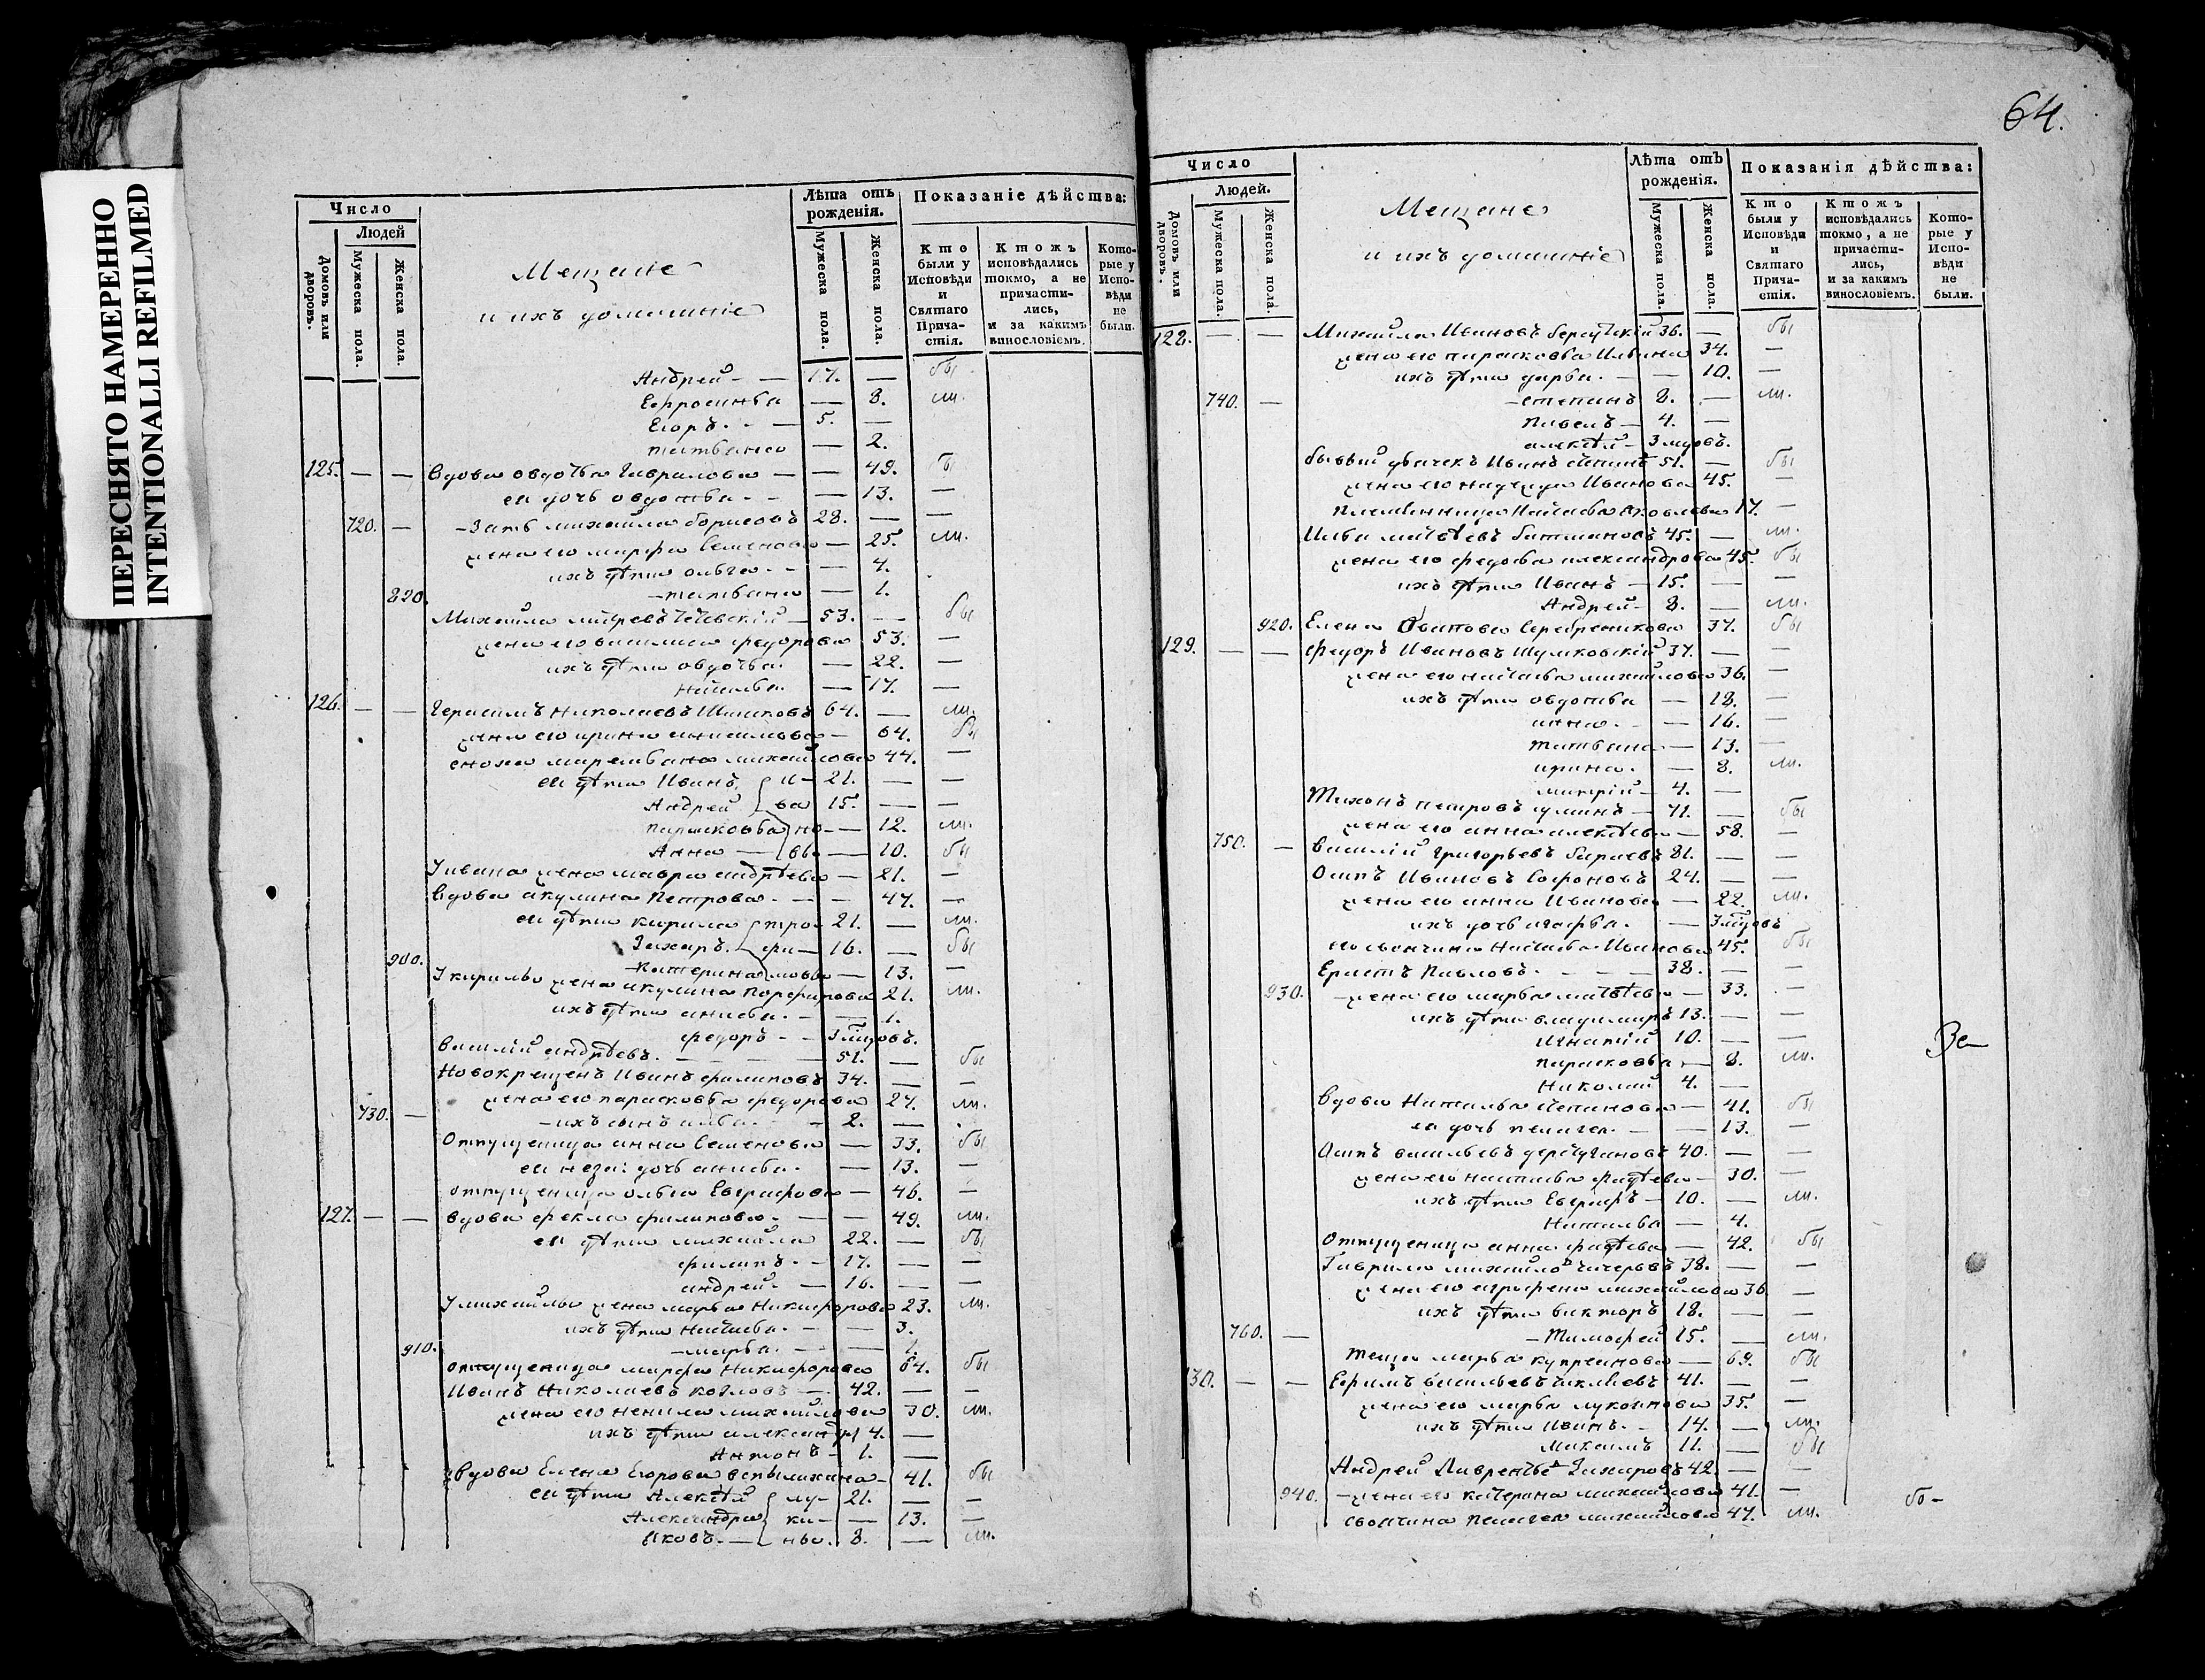 ПЕРЕСНЯТО НАМЕРЕННО
INTENTIONALLI REFILMED
Число
Людей
Домовъ или дворовъ.
Мужеска пола.
Женска пола.
Мещане
и ихъ домашніе
Лѣта отъ рожденія.
Мужеска пола.
Женска пола.
Показаніе дѣйства:
Кто были у Исповѣди и Святаго Причастія.
Ктожъ исповѣдались токмо, а не причастились, и за какимъ винословіемъ.
Которые у Исповѣди не были.
Андрей - — 17. — бы
Ефросинья — 8. мл.
Егоръ - — 5. —
татьяна — 2.
125. — — вдова овдотья Гаврилова — — 49. бы
ея дочь овдотья - - — 13. —
720. — -Зять михайла борисовъ 28. — —
жена его марфа Семенова — 25. мл.
ихъ дѣти ольга - - — 4.
820. -татьяна — 1.
Михайла — 53. — бы
жена его василиса федорова 53. —
ихъ дѣти овдотья. — 22. —
Наталья — 17. —
126. — — Герасимъ Николаевъ Шишковъ 64. — мл.
жена его ирина — 64. бы
сноха маремьяна михайлова 44. —
ея дѣти Иванъ { и- 21. — —
Андрей { ва 15. — —
парасковья но- — 12. мл.
Анна — вы — 10. бы
У ивана жена мавра андрѣева — 21. —
вдова акулина Петрова. - — — 47. —
ея дѣти кирила { тро- 21. — мл.
Захаръ. { фи- 16. — бы
900. -Катерина мовы — 13. —
У кирилы жена акулина Порфирова 21. мл.
ихъ дѣти анисья. - — 1.
федоръ - -
василій андрѣевъ. — — — 51. — бы
Новокрещенъ Иванъ филиповъ 34. — —
жена его парасковья федорова 27. мл.
730. — -ихъ сынъ илья. - - 2. — .
Отпущеница анна Семенова — 33. бы
ея неза: дочь анисья. — 13. —
отпущеница ольга Евграфова — 46. —
127. — — вдова фекла филипова. — — 49. мл.
ея дѣти михайла 22. — бы
филипъ. - 17. — —
андрей. — 16. — —
У михайлы жена марья Никифорова 23. мл.
ихъ дѣти Наталья. - — 3.
910. -марья. - — 1.
отпущеница марфа Никифорова 64. бы
Иванъ Николаевъ козловъ — 42. — —
жена его ненила михайлова 30. мл.
ихъ дѣти александръ 4. —
Антонъ - 1. —
вдова Елена Егорова - 41. бы
ея дѣти Алексѣй { лу- 21. — —
Александра { ки- — 13. —
Яковъ. — { ны. 8. — мл.
64.
Число
Людей.
Домовъ или дворовъ.
Мужеска пола.
Женска пола.
Мещане
и ихъ домашніе
Лѣта отъ рожденія.
Мужеска пола.
Женска пола.
Показанія дѣйства:
Кто были у Исповѣди и Святаго Причастія.
Ктожъ исповѣдались токмо, а не причастились, и за какимъ винословіемъ.
Которые у Исповѣди не были.
128. — — Михайла Ивановъ 36. — бы
жена его парасковья Ильина 34. —
ихъ дѣти дарья. - — 10. —
740. — -степанъ 8. — мл.
Павелъ — 4. —
алексѣй -
бывый Иванъ 51. — бы
жена его надежда Иванова 45. —
племянница Наталья яковлева 17. —
Илья матвѣевъ 45. — мл.
жена его федосья александрова 45. бы
ихъ дѣти Иванъ — 15. — —
Андрей - 8. — мл.
920. Елена Осипова Серебреникова 37. бы
129. — — федоръ Ивановъ Шумковскій 37. — —
жена его наталья михайлова 36. —
ихъ дѣти овдотья — 18. —
анна. - — 16. —
татьяна. — 13. —
ирина. — 8. мл.
митрій - 4. —
Тихонъ петровъ — 71. — бы
жена его анна алексѣева — 58. —
750. — василій григорьевъ 81. — —
Осипъ Ивановъ Сафоновъ 24. — —
жена его анна Иванова — 22. мл.
ихъ дочь агафья. —
его своячина Наталья Иванова 45. бы
Ерастъ Павловъ. - — — 38. — —
930. -жена его марья матвѣева — 33. —
ихъ дѣти владимиръ 13. — —
Игнатій 10. — —
парасковья — 8. мл.
Николай 4. —
вдова Наталья — 41. бы
ея дочь пелагея. - — 13. —
Осипъ васильевъ 40. — —
жена его наталья фадѣева — 30. —
ихъ дѣти Евграфъ — 10. — мл.
Наталья — 4.
Отпущеница анна фадѣева — 42. бы
Гаврила михайловъ 38. — —
жена его аграфена михайлова 36. —
ихъ дѣти викторъ 18. — —
760. — -Тимофей 15. — мл.
теща марья купреянова — 69. бы
130. — — Ефимъ васильевъ 41. — —
жена его марья лукоянова 35. —
ихъ дѣти Иванъ. - 14. — мл.
Максимъ 11. — бы
Андрей Лаврентье Захаровъ 42. — —
940. -жена его катерина михайлова 41. —
своячина пелагея михайлова 47. мл.